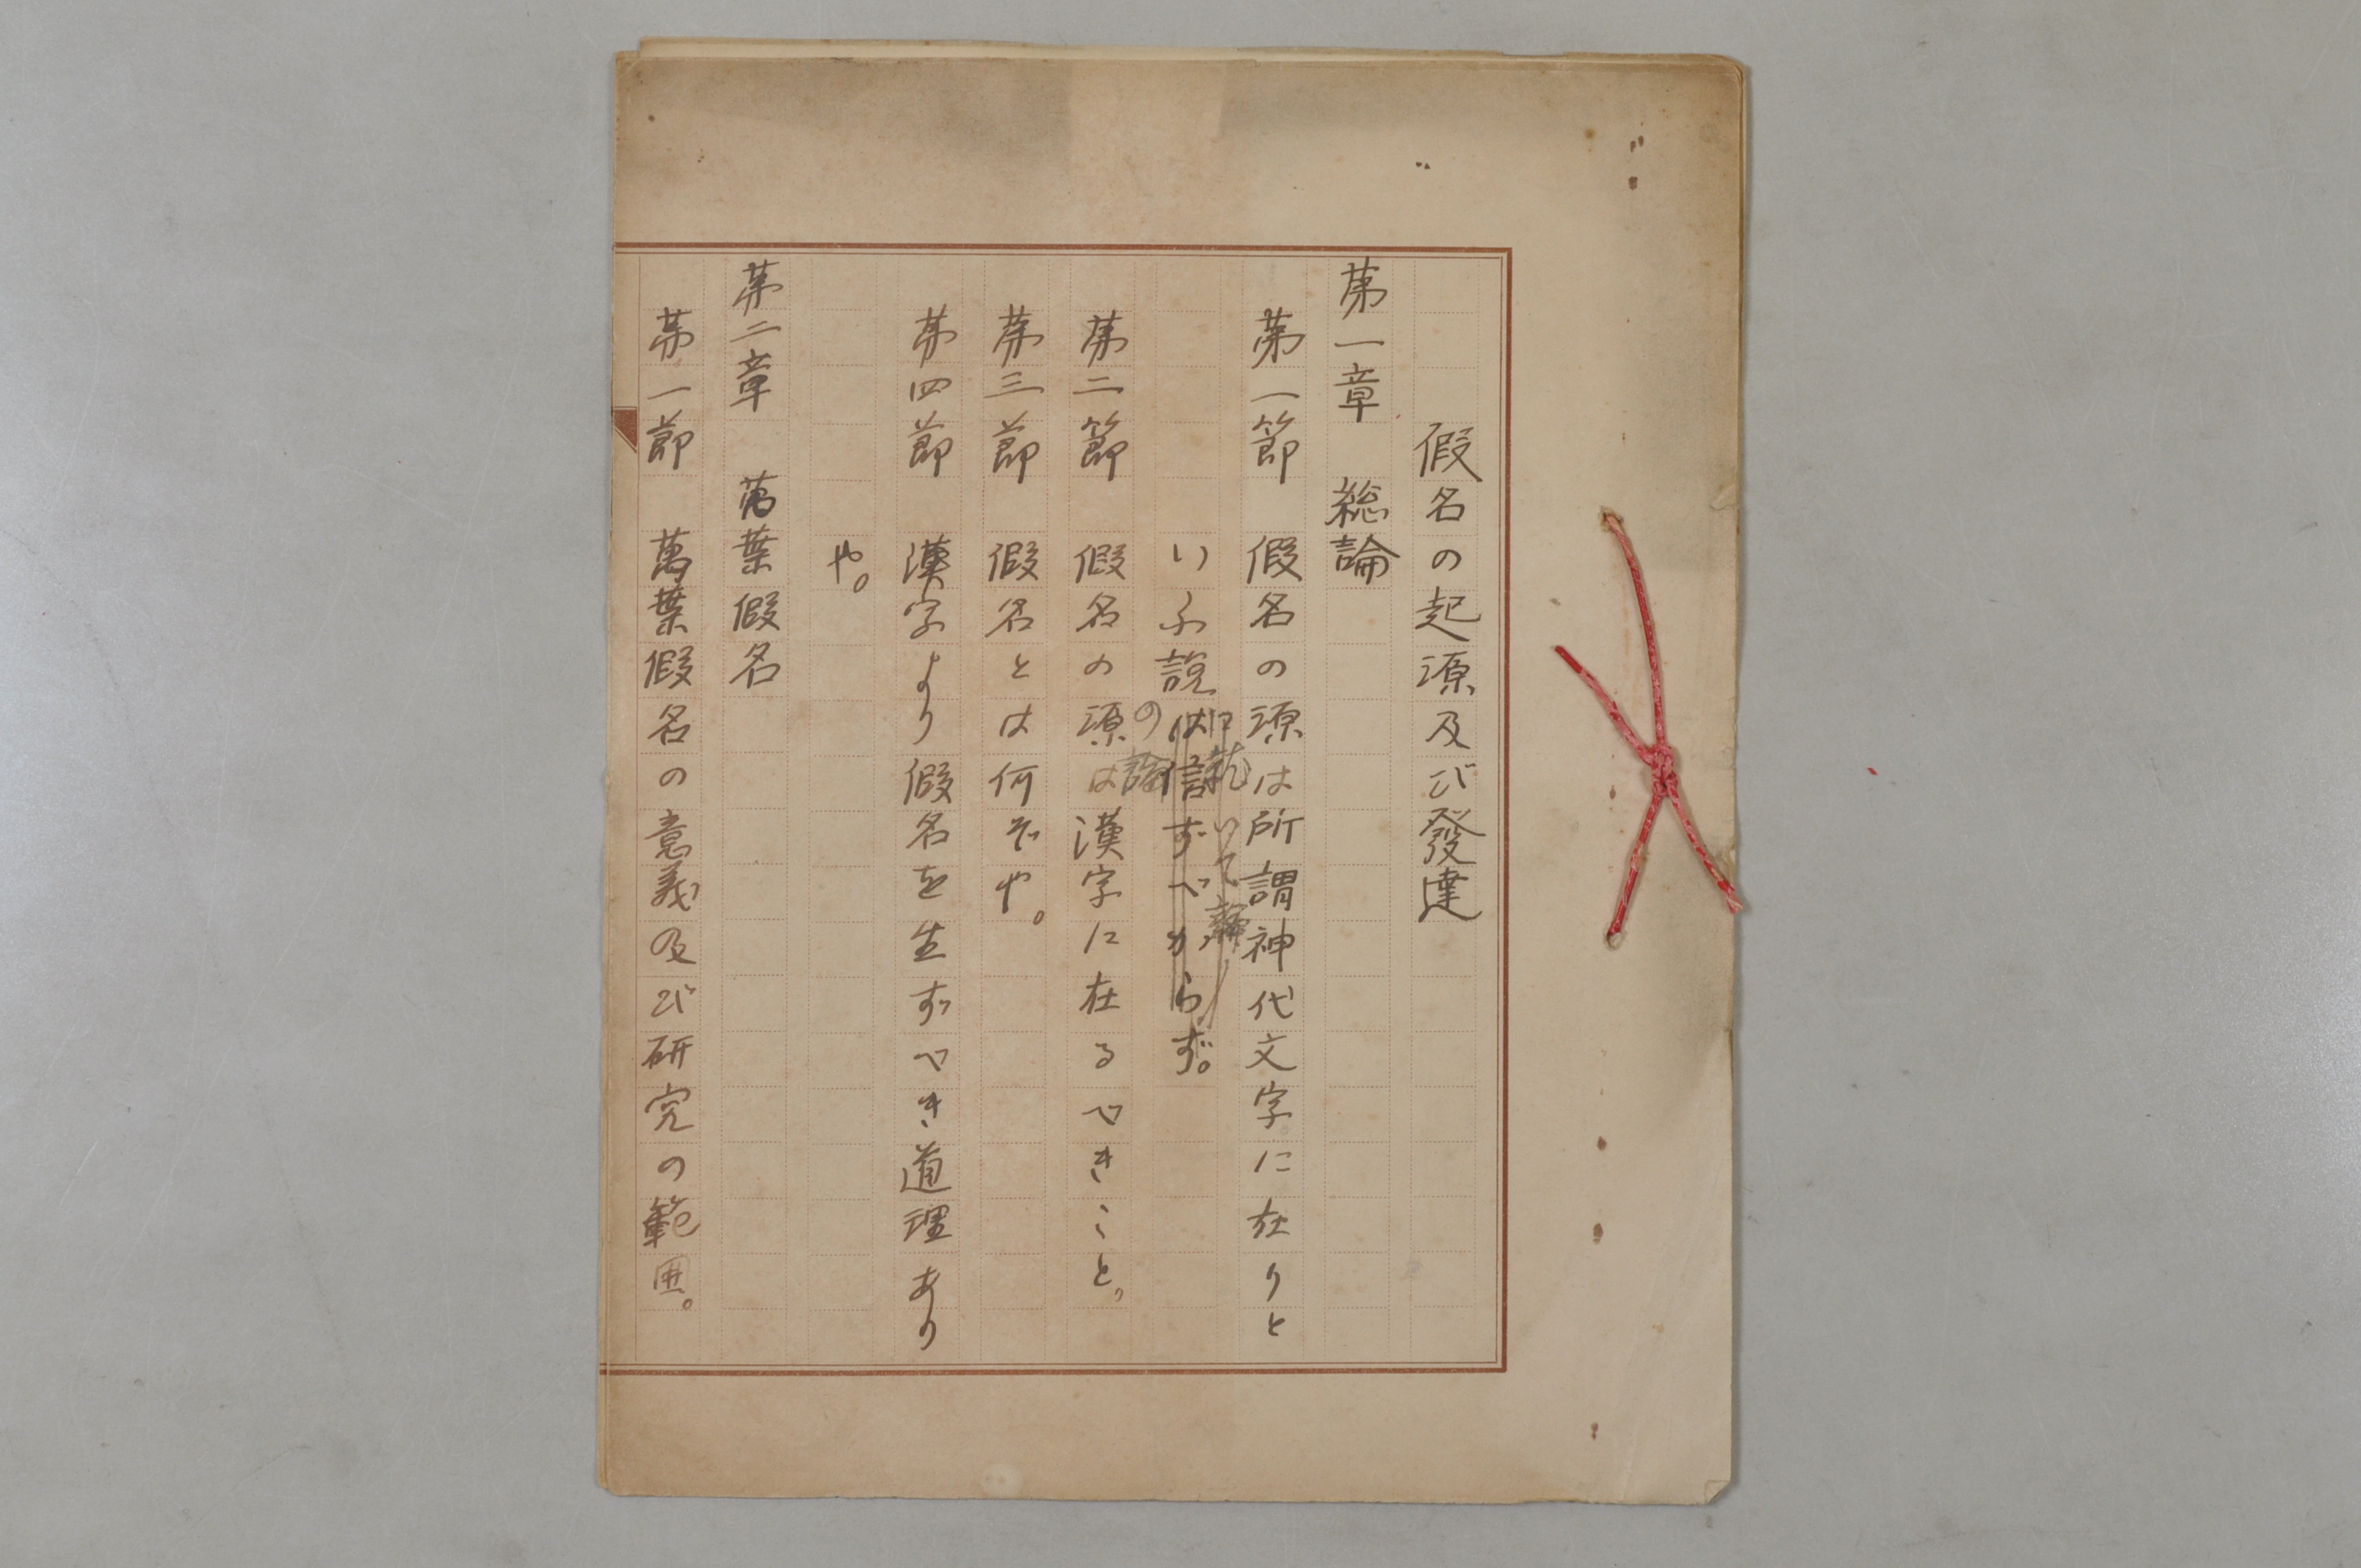 假名の起源及び發達
第一章 総論
第一節 假名の源は所謂神代文字に在りと
いふ説は信ずべからず。
に就いて
の論
第二節 假名の源は漢字に在るべきこと。
第三節 假名とは何ぞや。
第四節 漢字より假名を生ずべき道理あり
や。
第二章 萬葉假名
第一節 萬葉假名の意義及び研究の範囲。